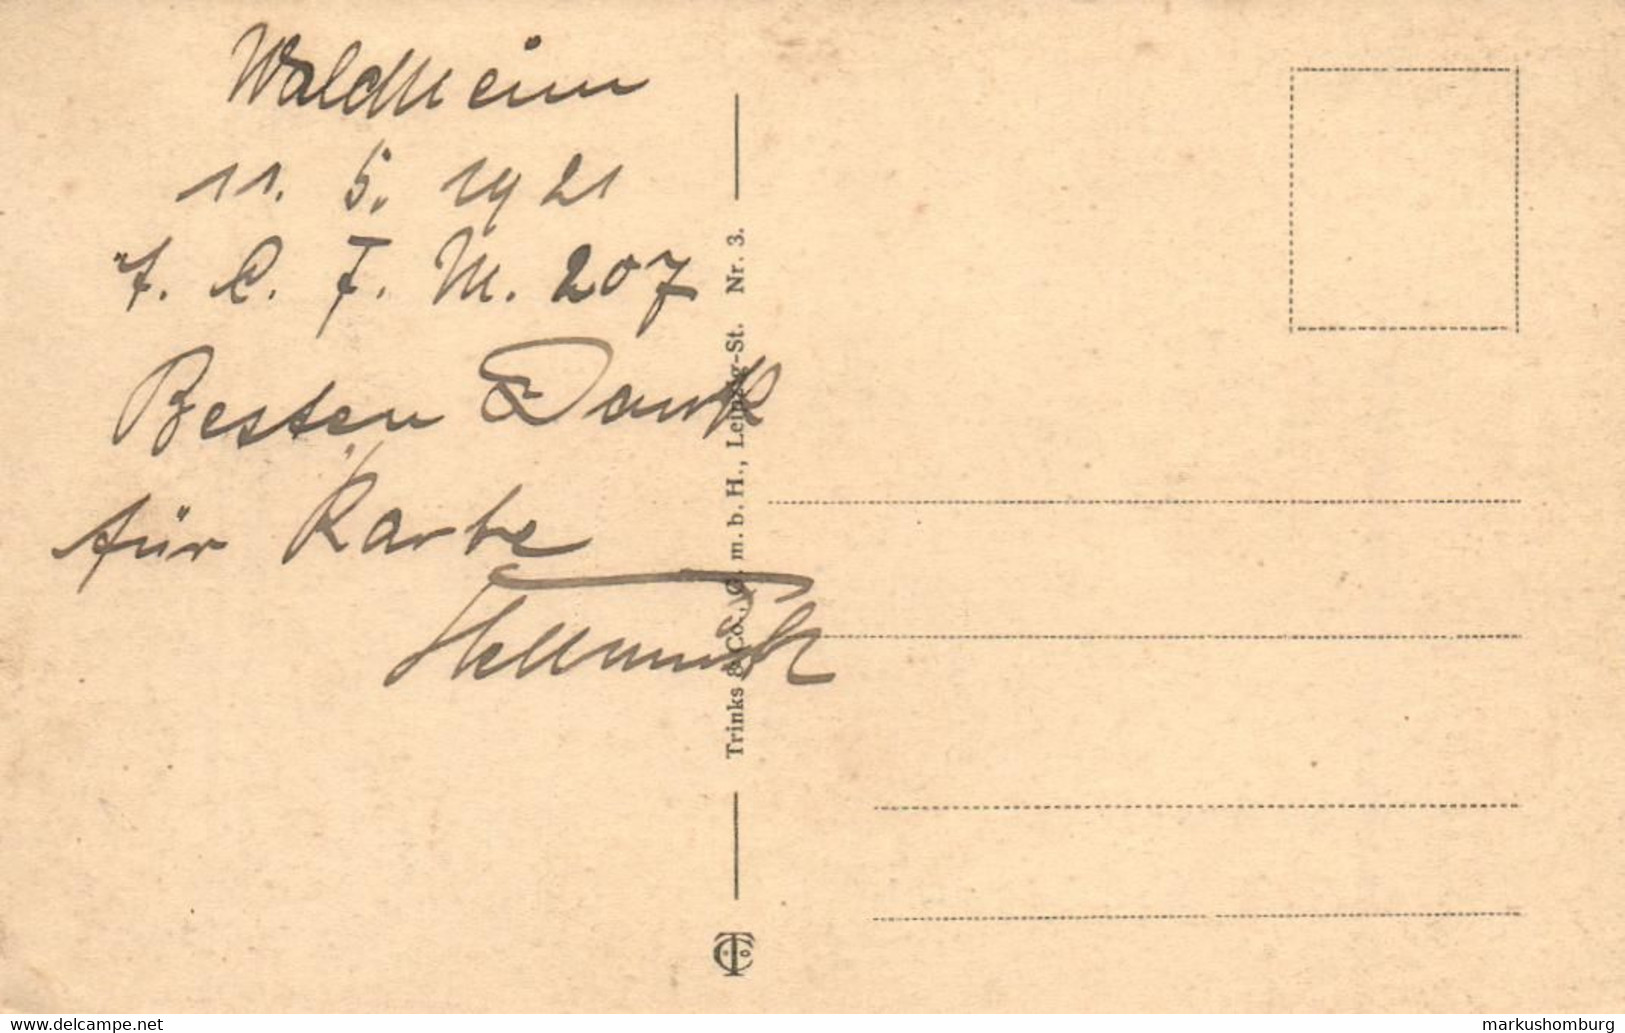 Waldheim
11. 5. 1921
f. C. F. M. 207
Besten Dank
für Karte
Hellmuth
Trinks & Co., G. m. b. H., Leipzig-St. Nr. 3.
www.delcampe.net
markushomburg